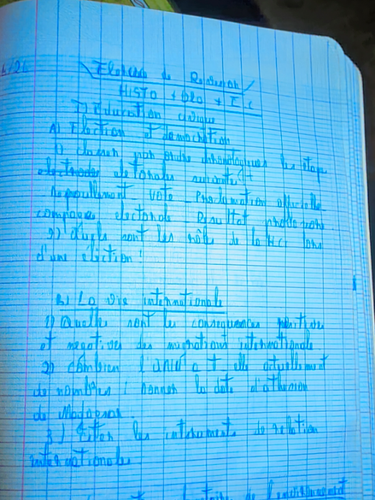 de
HISTO + GEO + E C
I) Education civique
A) Election et democration
1) classer par ordre chronologiques les étape
electorales suivante :
Depouillement _ vote _ Proclamation officielle
campagne electorale _ Resultat provisoire
2) Quels sont les rôle de la HCC lors
d'une election !
B) La vie internationale
1) Quelles sont les consequences positives
et negatives des migrations internationale
2) Combien l'ONU a t elle actuellement
de nombres ; donner la date d'adhesion
de Madagascar.
3) Citer les instruments de rellation
internationales
de l'environnement